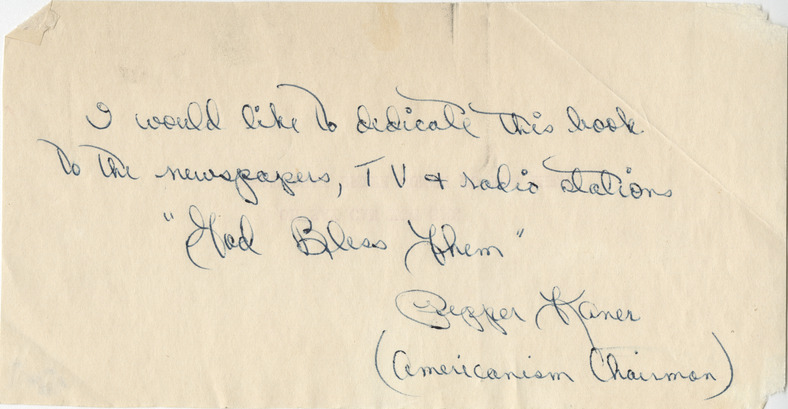 I would like to dedicate this book
to the newspapers, TV & radio stations
"God Bless Them"
Pepper Kaner
(Americanism Chairman)